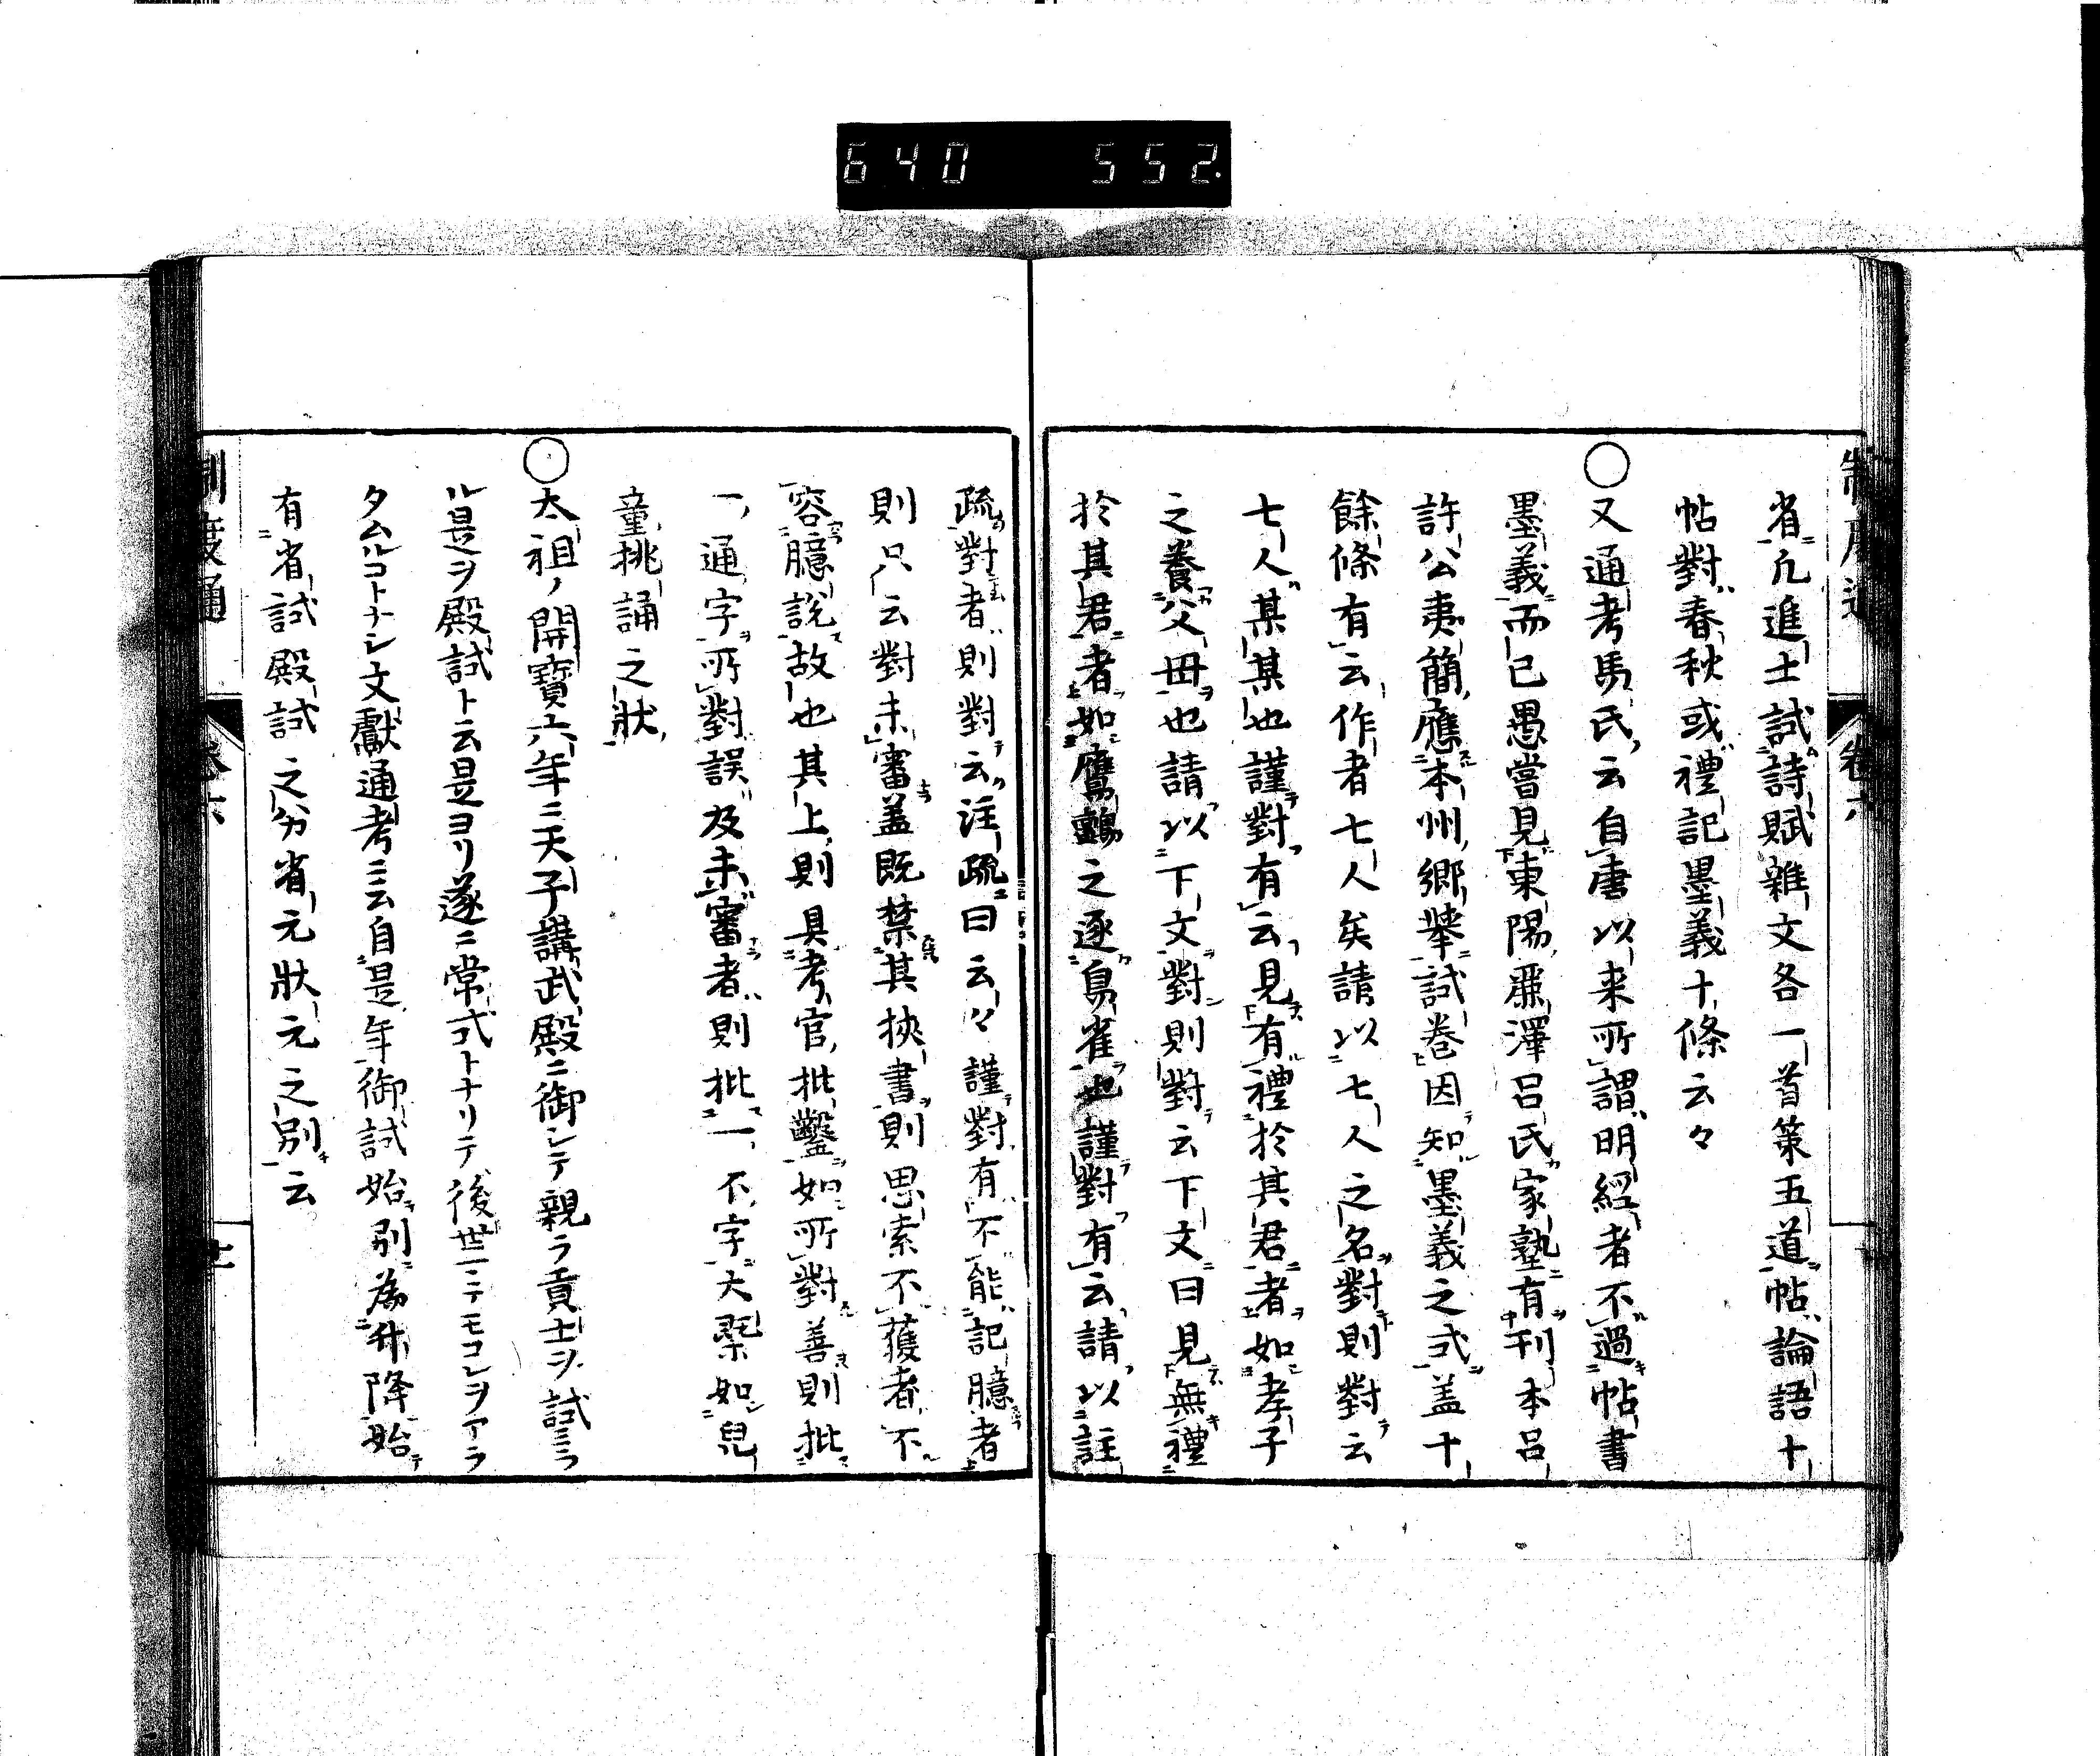 640 552
制度通 卷六
省凢進士試詩賦雜文各一首策五道帖論語十
帖對春秋或禮記墨義十條云々
○又通考馬氏云自唐以来所謂明經者不過帖書
墨義而已愚嘗見東陽麗澤呂氏家塾有刊本呂
許公夷簡應本州郷舉試卷因知墨義之式盖十
餘條有云作者七人矣請以七人之名對則對云
七人某某也謹對有云見有禮於其君者如孝子
之養父毋也請以下文對則對云下文曰見無禮
於其君者如鷹鸇之逐鳥雀也謹對有云請以註
疏對者則對云注疏曰云々謹對有不能記臆者
則只云對未審盖既禁其挾書則思索不獲者不
容臆説故也其上則具考官批鑿如所對善則批
一通字所對誤及未審者則批一不字大槩如兒
童挑誦之狀
○太祖ノ開寶六年ニ天子講武殿ニ御シテ親ラ貢士ヲ試ミラ
ル是ヲ殿試ト云是ヨリ遂ニ常式トナリテ後世ニテモコレヲアラ
タムルコトナシ文獻通考ニ云自是年御試始別為升降始
有省試殿試之分省元狀元之別云
制度通 卷六